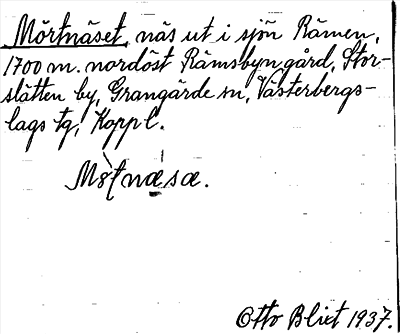 Mörtnäset, näs ut i sjön Rämen,
1700 m. nordöst Rämsbyn gård, Stor-
slätten by, Grangärde sn, Västerbergs-
lags tg, Koppl.
Mö̀ʈnæ̣sæ.
Otto Blixt 1937.